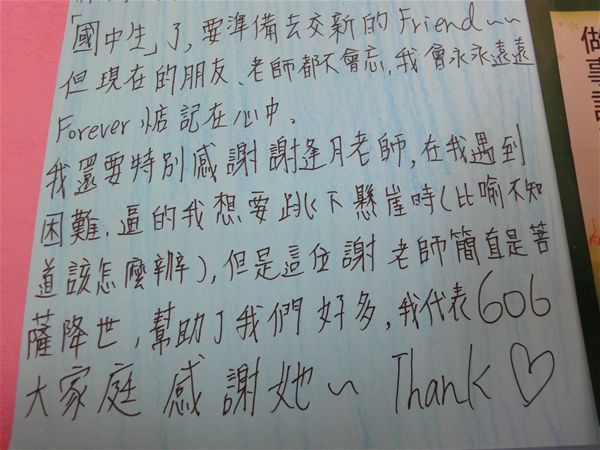 「國中生」了,要準備去交新的Friend~~
但現在的朋友、老師都不會忘,我會永永遠遠
Forever 惦記在心中、
我還要特別感謝謝逢月老師,在我遇到
困難、逼的我想要跳下懸崖時(比喻不知
道該怎麼辦),但是這位謝老師簡直是菩
薩降世,幫助了我們好多,我代表606
大家庭 感謝她~ Thank♡
做
事